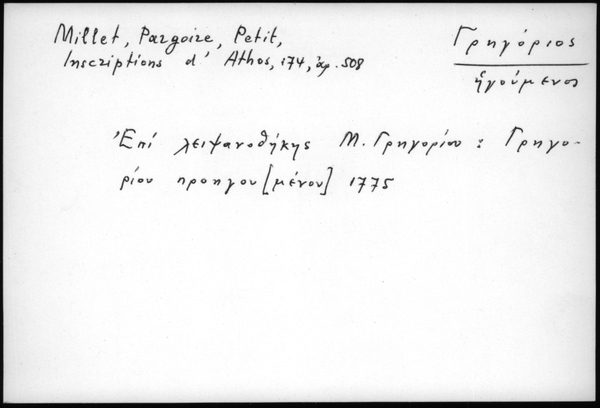 Millet, Pargoire, Petit,
Inscriptions d' Athos, 174, ἀρ. 508
Γρηγόριος
ἡγούμενος
Ἐπί λειψανοθήκης Μ. Γρηγορίου : Γρηγο-
ρίου προηγου[μένου] 1775